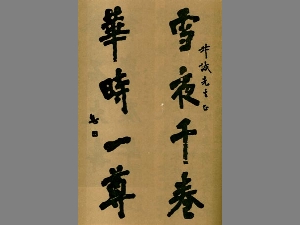 雪夜千卷
華時一尊